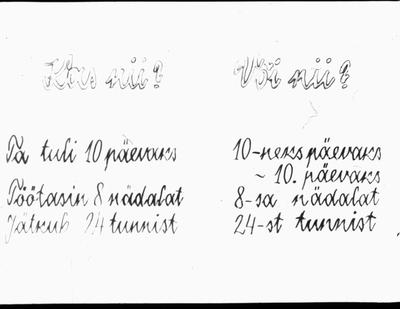 Kas nii?
Või nii?
Ta tuli 10 päevaks
10-neks päevaks
~ 10. päevaks
Töötasin 8 nädalat
8-sa nädalat
Jätkub 24 tunnist
24-st tunnist